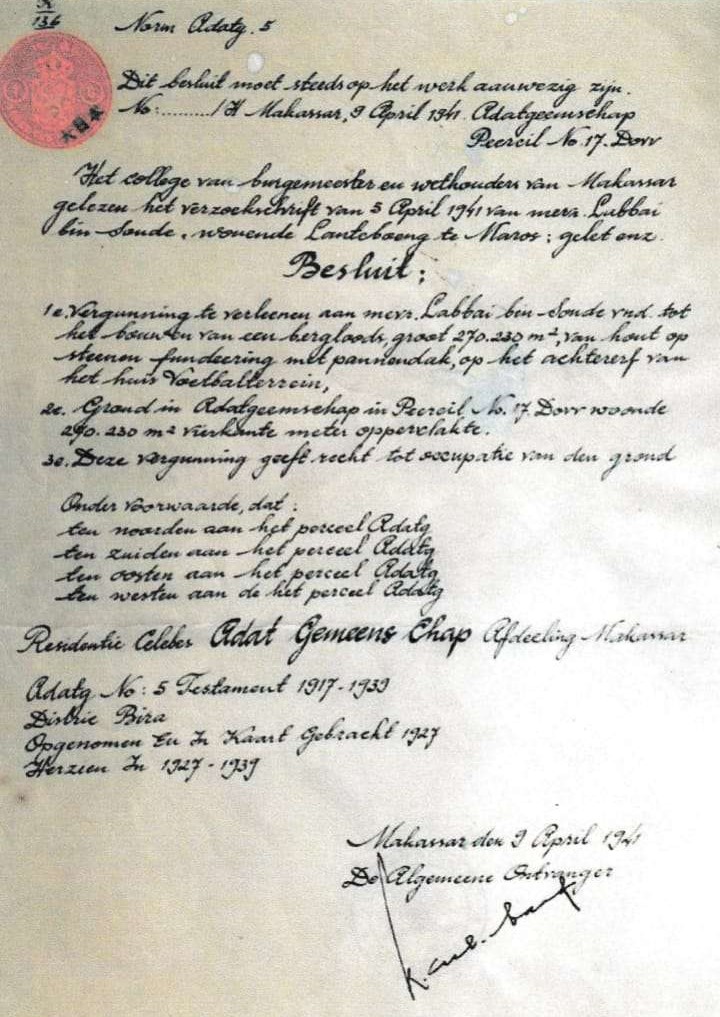 136
Norm Adatg. 5
大日本
Dit besluit moet steeds op het werk aanwezig zijn.
No:........./H Makassar, 9 April 1941. Adatgeemschap
Peerceil No. 17. Dorv
Het college van burgemeester en wethouders van Makassar
gelezen het verzoekschrift van 5 April 1941 van mevr. Labbai
bin-Soude, wouende Lanteboeng te Maros; gelet enz.
Besluit:
1e. Vergunning te verleenen aan mevr. Labbai bin-Soude vnd. tot
het bouwen van een bergloods, groot 270.230 m², van hout op
steenen fundeering met pannendak, op het achtererf van
het huis Voetbalterrein,
2e. Grond in Adatgeemschap in Peerceil No. 17. Dorv woonde
270.230 m² vierkante meter oppervlakte.
3e. Deze vergunning geeft recht tot occupatie van den grond
Onder voorwaarde, dat:
ten noorden aan het perceel Adatg
ten zuiden aan het perceel Adatg
ten oosten aan het perceel Adatg
ten westen aan de het perceel Adatg
Residentie Celebes Adat Gemeens Chap Afdeeling Makassar
Adatg No: 5 Testament 1917-1939
Distric Bira
Opgenomen En In Kaart Gebracht 1927
Herzien In 1927-1939
Makassar den 9 April 1941
De Algemeene Ontvanger